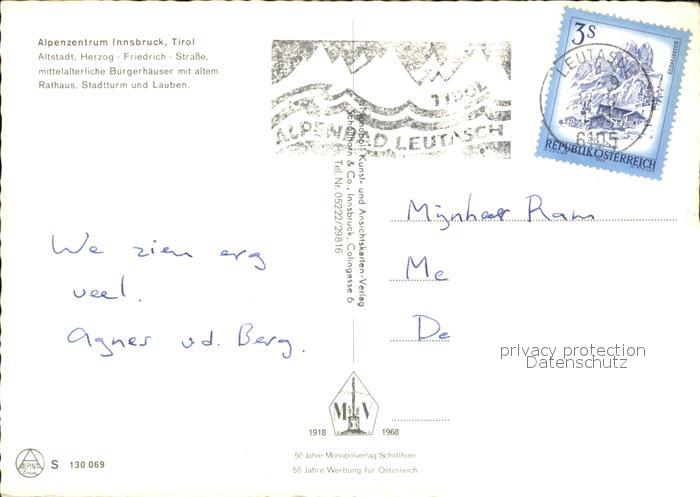 Alpenzentrum Innsbruck, Tirol
Altstadt, Herzog - Friedrich - Straße,
mittelalterliche Bürgerhäuser mit altem
Rathaus, Stadtturm und Lauben.
TIROL
ALPENBAD LEUTASCH
3 S
LEUTASCH
6105
REPUBLIK ÖSTERREICH
Monopol: Kunst- und Ansichtskarten-Verlag
Schöllhorn & Co., Innsbruck, Colingasse 6
Tel. Nr. 05222/29816
Mijnheer Ram
Me
De
We zien erg
veel.
Agnes v.d. Berg.
privacy protection
Datenschutz
M V
1918 1968
50 Jahre Monopolverlag Schöllhorn
50 Jahre Werbung für Österreich
ALPINA
S 130 069